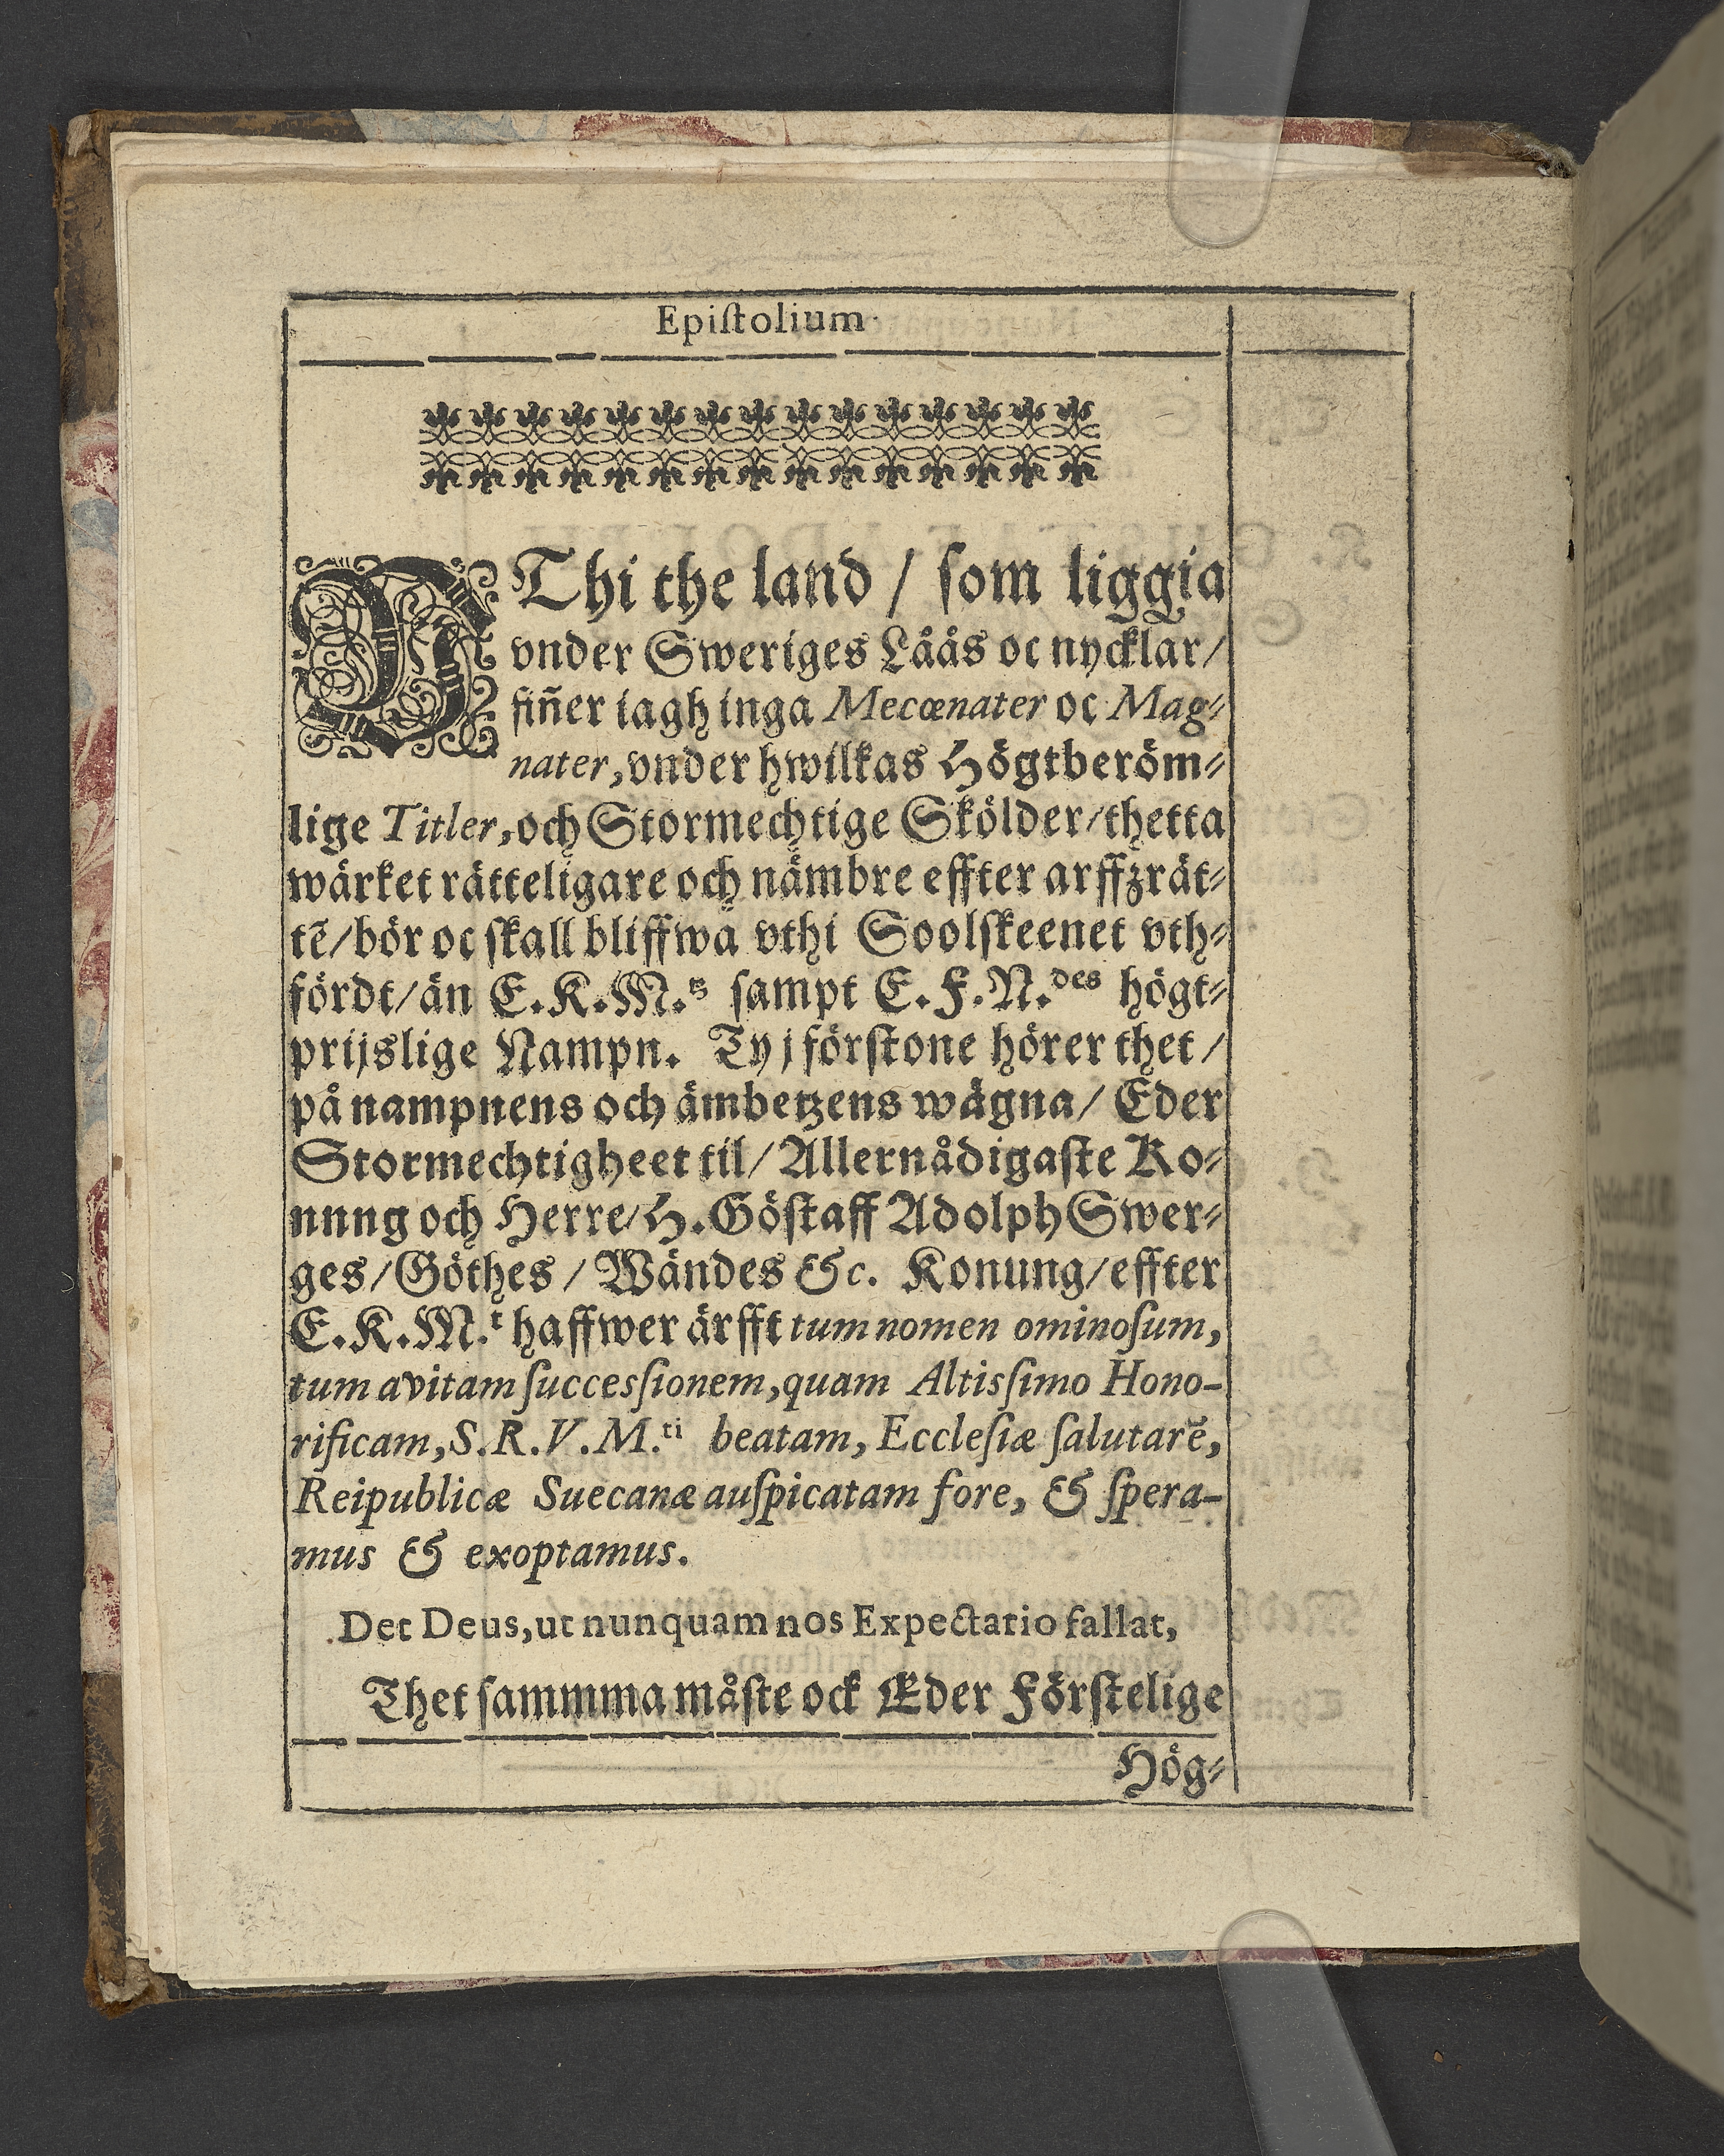 Epiſtolium.
VThi the land / ſom liggia
vnder Sweriges Låås oc nycklar/
fiñer iagh inga Mecœnater oc Mag⸗
nater, vnder hwilkas Högtberöm⸗
lige Titler, och Stormechtige Skölder/thetta
wärket rätteligare och nämbre effter arffzrät⸗
tẽ/bör oc ſkall bliffwa vthi Soolſkeenet vth⸗
fördt/än E.K.M.tz ſampt E.F.N.des högt⸗
prijslige Nampn. Ty j förſtone hörer thet/
på nampnens och ämbetzens wägna/ Eder
Stormechtigheet til/ Allernådigaſte Ko⸗
nnng och Herre/H.Göſtaff Adolph Swer⸗
ges/Göthes/ Wändes &c. Konung/effter
E.K.M.t haffwer ärfft tum nomen ominoſum,
tum avitam ſuccesſionem, quam Altisſimo Hono-
rificam, S.R.V.M.ti beatam, Eccleſiæ ſalutarẽ,
Reipublicæ Suecanæ auſpicatam fore, & ſpera-
mus & exoptamus.
Det Deus, ut nunquam nos Expectatio fallat,
Thet ſammma måſte ock Eder Förſtelige
Hög⸗